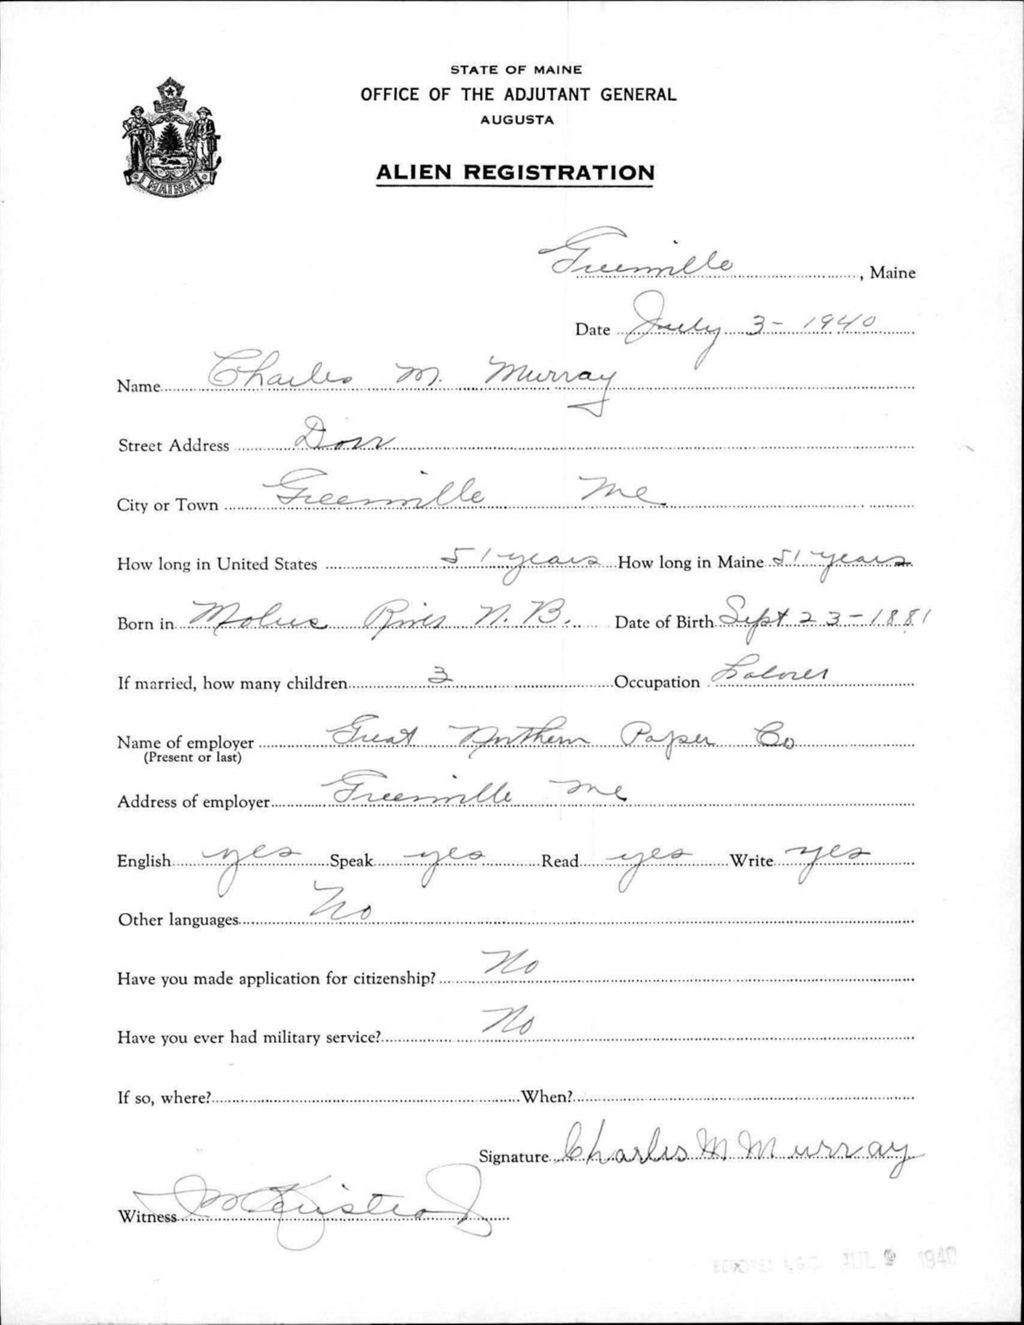 STATE OF MAINE
OFFICE OF THE ADJUTANT GENERAL
AUGUSTA
ALIEN REGISTRATION
MAINE
Greenville, Maine
Date July 3 - 1940
Name Charles M. Murray
Street Address Dorr
City or Town Greenville Me
How long in United States 51 years How long in Maine 51 years
Born in Molus River N. B. Date of Birth Sept 23 - 1881
If married, how many children 3 Occupation Laborer
Name of employer Great Northern Paper Co
(Present or last)
Address of employer Greenville Me
English yes Speak yes Read yes Write yes
Other languages No
Have you made application for citizenship? No
Have you ever had military service? No
If so, where? When?
Signature Charles M Murray
Witness
JUL 9 1940